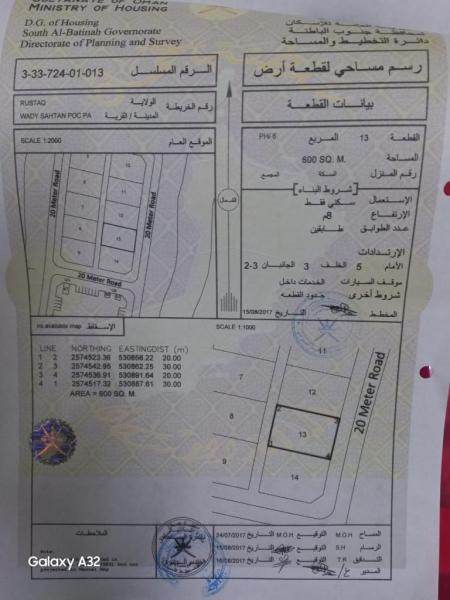 SULTANATE OF OMAN
MINISTRY OF HOUSING
D.G. of Housing
South Al-Batinah Governorate
Directorate of Planning and Survey
دائرة التخطيط والمساحة
3-33-724-01-013
الرقم المسلسل
رسم مساحي لقطعة أرض
RUSTAQ
الولاية
رقم الخريطة
WADY SAHTAN POC PA
المدينة / القرية
بيانات القطعة
SCALE 1:2000
الموقع العام
القطعة
13
المربع
PH/ 6
المساحة
600 SQ. M.
رقم المنزل
السكة
المجمع
شروط البناء
الإستعمال
سكني فقط
الإرتفاع
8م
عدد الطوابق
طابقين
الإرتدادات
الأمام
5
الخلف
3
الجانبان
2-3
موقف السيارات
الخدمات داخل
شروط أخرى
حدود القطعه
المخطط
التاريخ
15/08/2017
20 Meter Road
20 Meter Road
20 Meter Road
10
12
13
14
الشمال
no available map
الإسقاط
SCALE 1:1000
LINE NORTHING EASTING DIST (m)
1 2 2574523.36 530858.22 20.00
2 3 2574542.95 530862.25 30.00
3 4 2574536.91 530891.64 20.00
4 1 2574517.32 530887.61 30.00
AREA = 600 SQ. M.
11
7
12
8
13
9
14
20 Meter Road
الملاحظات
Note:
المساح
M.O.H
التوقيع
M.O.H
التاريخ
24/07/2017
الرسام
S.H
التوقيع
التاريخ
15/08/2017
المدقق
T.R
التوقيع
التاريخ
16/08/2017
المدير
Galaxy A32